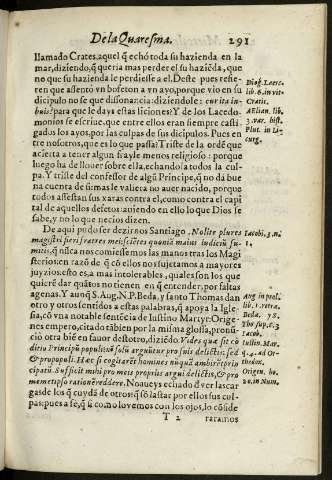 De la Quaresma.
291
llamado Crates, aquel q̃ echó toda su hazienda en la
mar, diziendo, q̃ queria mas perder el su haziẽda, que
no que su hazienda le perdiesse a el. Deste pues refie-
ren que assentó vn bofeton a vn ayo, porque vio en su
dicipulo no se que dissonancia: diziendole: cur ita in-
buis? para que le days estas liciones? Y de los Lacede-
monios se escriue, que entre ellos eran siempre casti-
gados los ayos, por las culpas de sus dicipulos. Pues en
tre nosotros, que es lo que passa? Triste de la ordẽ que
acierta a tener algun frayle menos religioso: porque
luego ha de llouer sobre ella, echandola todos la cul-
pa. Y triste del confessor de algũ Principe, q̃ no da bue
na cuenta de si: mas le valiera no auer nacido, porque
todos assestan sus xaras contra el, como contra el capi
tal de aquellos defetos: auiendo en ello lo que Dios se
sabe, y no lo que necios dizen.
De aqui pudo ser dezirnos Santiago. Nolite plures
magistri fieri fratres mei: scientes quoniã maius iudiciũ su-
mitis, q̃ nũca nos comiessemos las manos tras los Magi
sterios: en razõ de q̃ cõ ellos nos sujetamos a mayores
juyzios: esto es, a mas intolerables, quales son los que
quierẽ dar quãtos no tienen en q̃ entender, por faltas
agenas. Y aunq̃ S. Aug. N. P. Beda, y santo Thomas dan
otro y otros sentidos a estas palabras, q̃ apoya la Igle-
sia, cõ vna notable sentẽcia de Iustino Martyr: Orige-
nes empero, citado tãbien por la misma glossa, pronũ
ció otra biẽ en fauor destotro, diziẽdo. Vides quæ sit cõ
ditio Principũ populi: nõ solũ arguũtur pro suis delictis: sed
& pro populi. Hæc si cogitarẽt homines nũquã ambirẽt prin
cipatũ. Sufficit mihi pro meis proprijs argui delictis, & pro
memetipso rationẽ reddere. No aueys echado d' ver lascar
gas de los q̃ cuydã de otros: q̃ sõ lastar por ellos sus cul-
pas: pues a fe, q̃ si como lo vemos con los ojos, lo cõside
T 2
raramos
Diog. Laert.
lib. 6. in vit.
Cratis.
Ælian. lib.
3. var. hist.
Plut. in Li
curg.
Iacobi. 3. n.
1.
Aug. in prol.
lib. 1. retra.
Beda.
Tho sup. 6. 3
Iacob.
Iustin. Mar.
q. 4. ad Or-
thodox.
Origen. ho.
20. in Num.